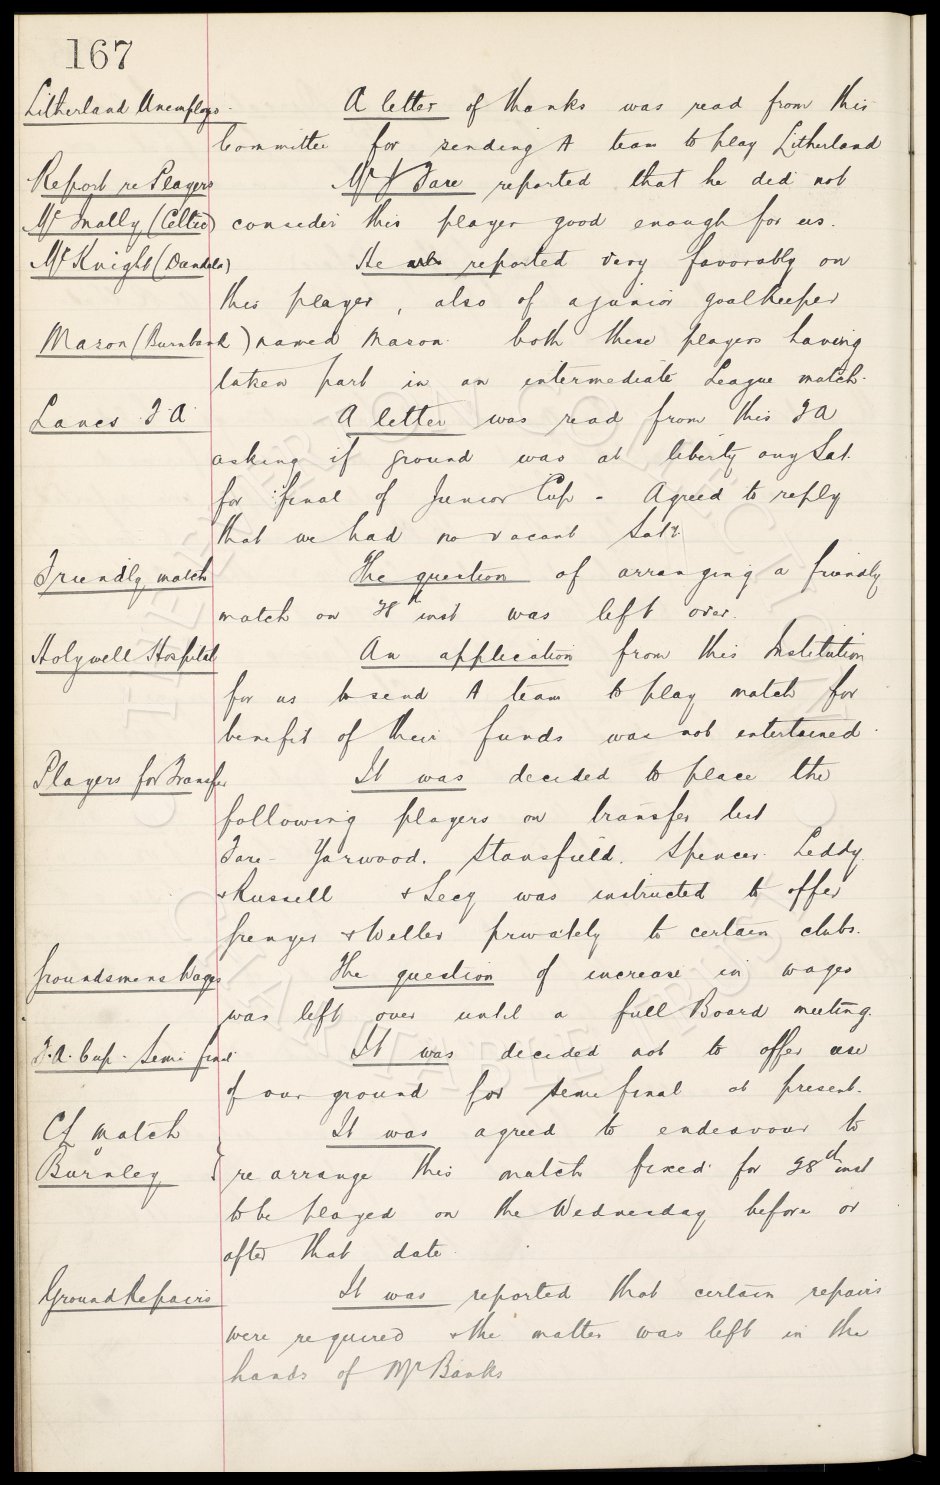 167
Litherland Unemploys. A letter of thanks was read from this
Committee for sending A team to play Litherland
Report re Players Mr Fare reported that he did not
McInally (Celtic) consider this player good enough for us.
McKnight (Dundela) He also reported very favorably on
this player, also of a junior goalkeeper
Mason (Burnbank) named Mason. both these players having
taken part in an intermediate League match.
Lancs F A A letter was read from this F A
asking if ground was at liberty any Sat.
for final of Junior Cup - Agreed to reply
that we had no vacant Satys.
Friendly match The question of arranging a friendly
match on 28th inst was left over.
Holywell Hospital An application from this Institution
for us to send A team to play match for
benefit of their funds was not entertained.
Players for Transfer It was decided to place the
following players on transfer list
Fare - Yarwood. Stansfield. Spencer. Leddy
& Russell & Secy was instructed to offer
Grenyer & Weller privately to certain clubs.
Groundsmens Wages The question of increase in wages
was left over until a full Board meeting.
F.A. Cup - Semi final It was decided not to offer use
of our ground for semi final at present.
CL match It was agreed to endeavour to
v
Burnley } re arrange this match fixed for 28th inst
to be played on the Wednesday before or
after that date.
Ground Repairs It was reported that certain repairs
were required & the matter was left in the
hands of Mr Banks
THE EVERTON COLLECTION
CHARITABLE TRUST